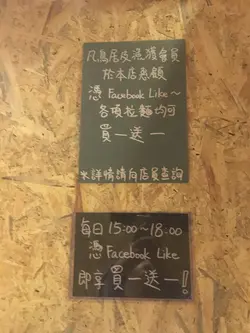 凡為居皮過獲會員
於本店惠顧
憑 Facebook Like~
各項拉麵均可
買一送一
*詳情請向店員查詢
每日 15:00~18:00
憑 Facebook Like
即享買一送一!